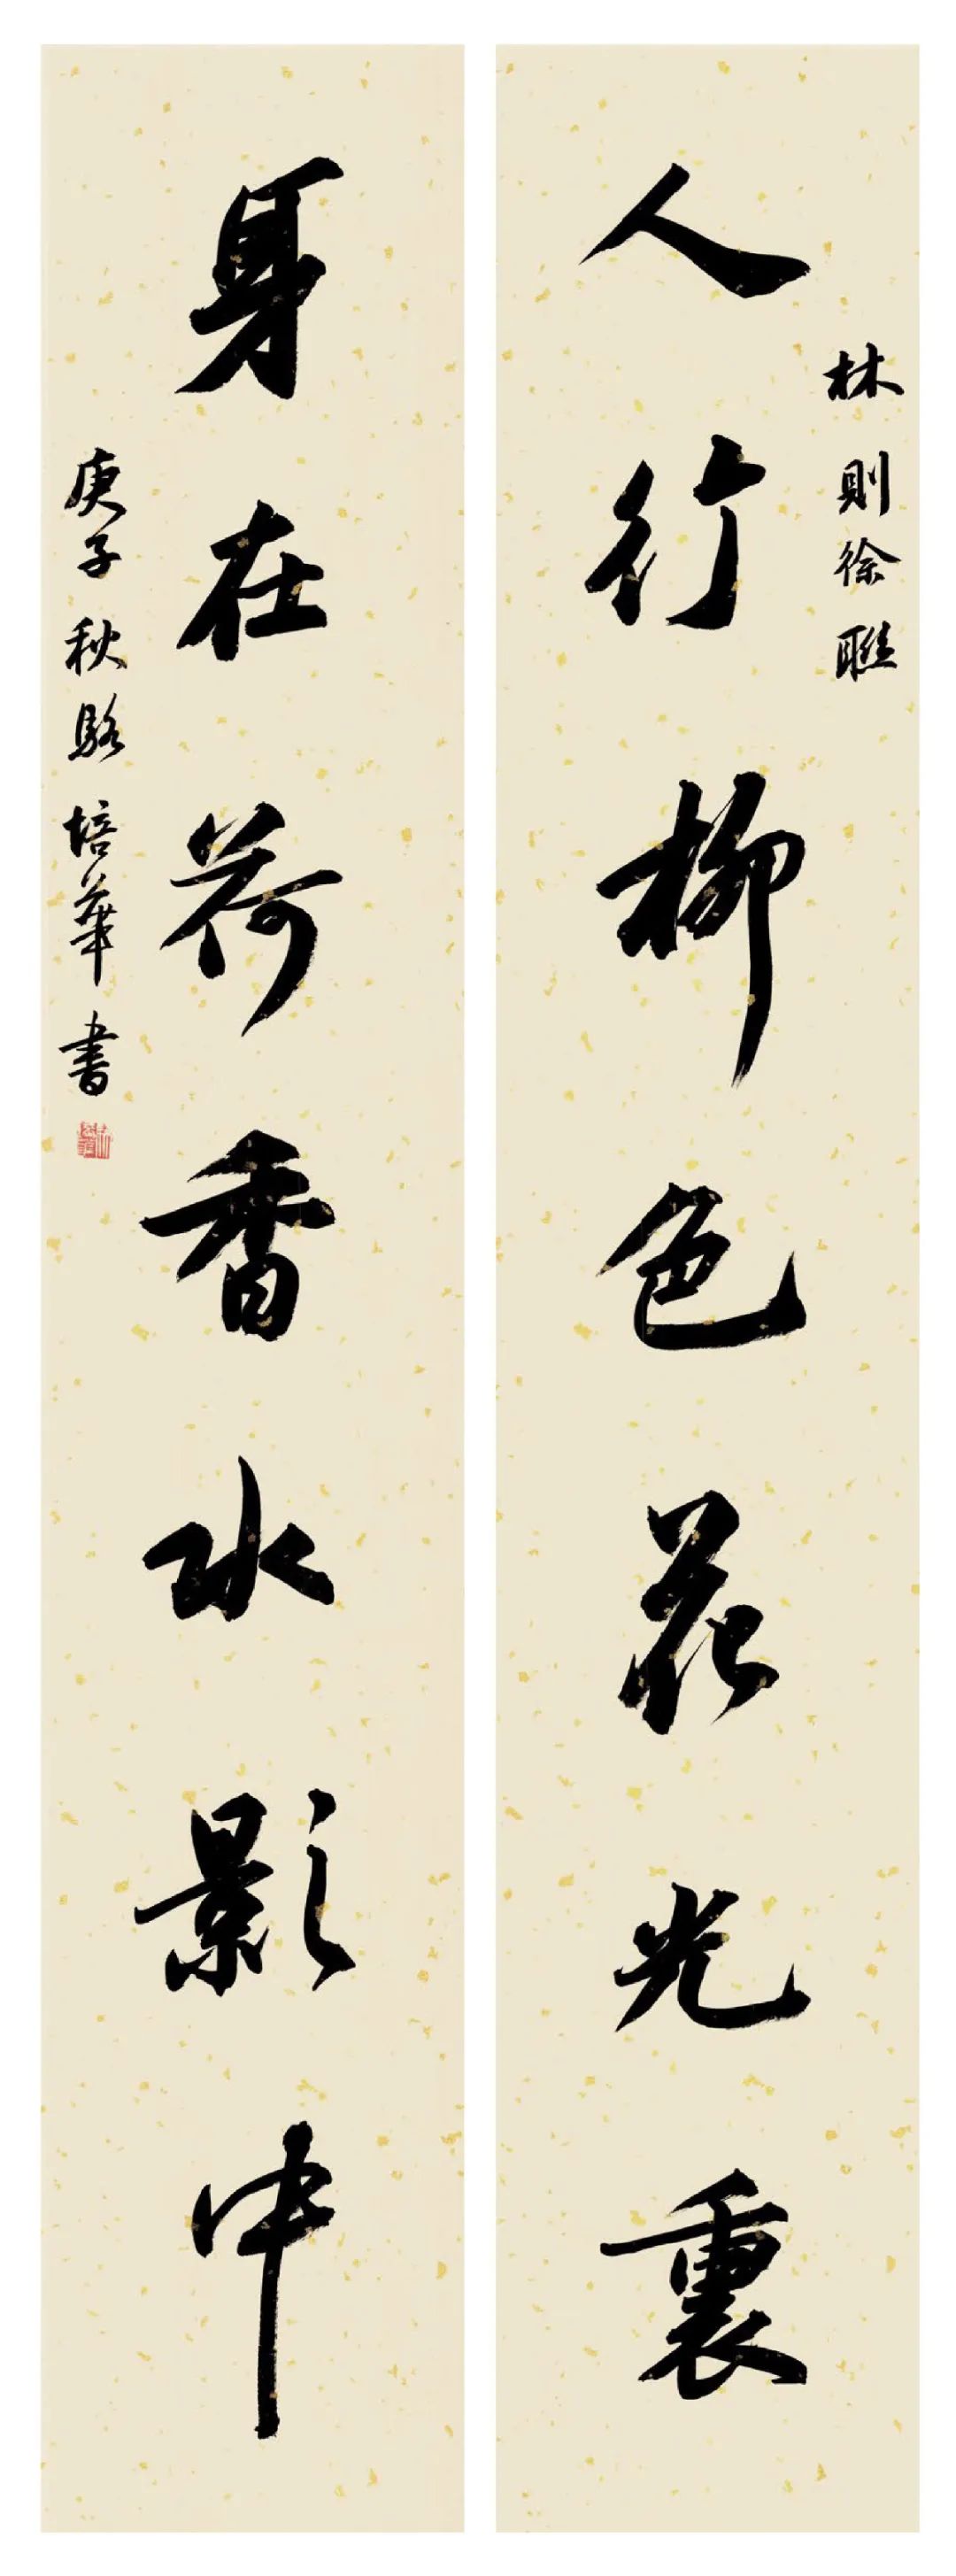 林則徐聯
人行柳色花光裏
身在荷香水影中
庚子秋駱培華書